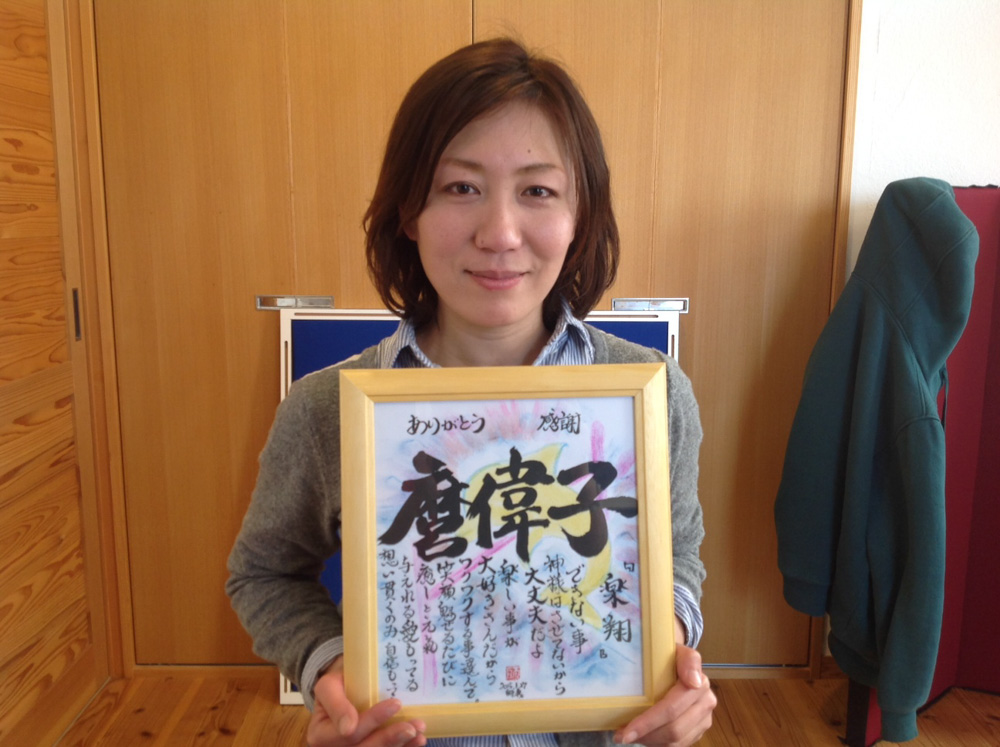 ありがとう 感謝
麿偉子
楽翔
できない事
神様はさせてないから
大丈夫だよ
楽しい事が
大好きさんだから
ワクワクする事選んで、
笑顔魅せるたびに
癒しと元気
与えれる愛もってる
想い貫くのみ 自信もって